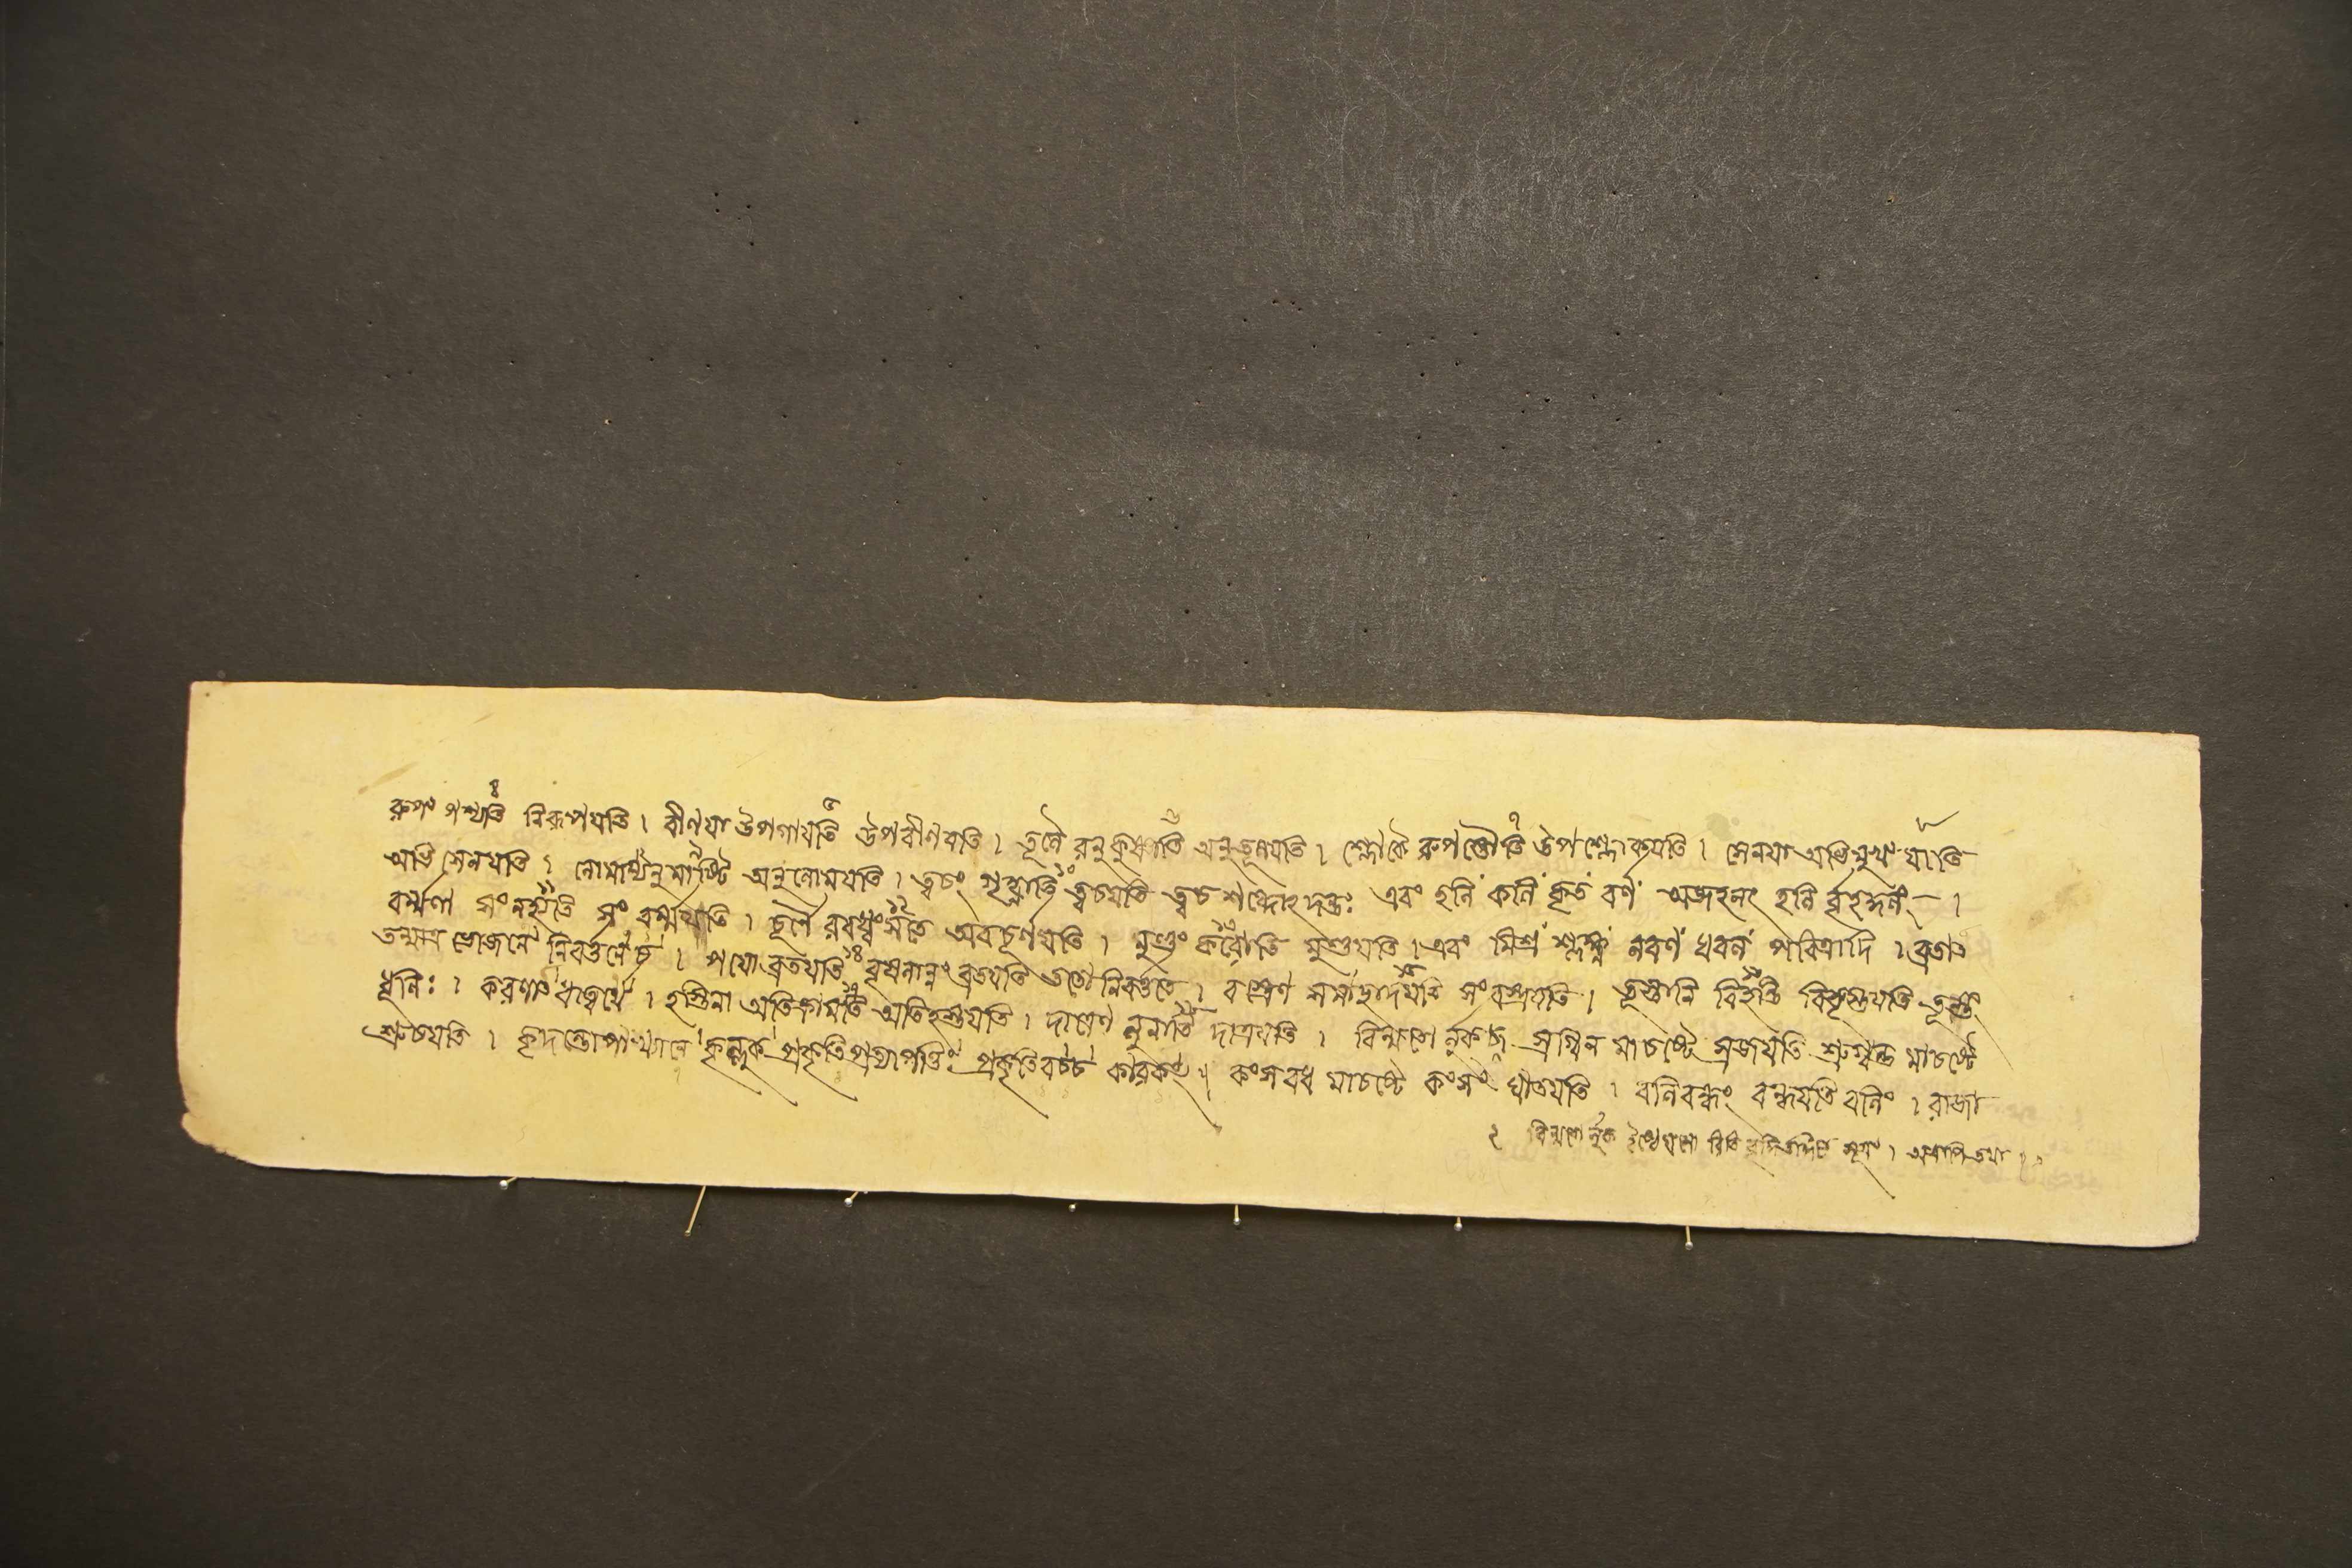 রূপং পশ্যতি নিরূপযতি । বীণযা উপগাযতি উপবীণযতি । তূলৈ রনুকুষ্ণাতি অনুতূলযতি । শ্লোকৈ রুপস্তৌতি উপশ্লোকযতি । সেনযা অভিমুখং যাতি
অভিসেনযতি । লোমান্যনুমার্ষ্টি অনুলোমযতি । ত্বচং গৃহ্ণাতি ত্বচযতি ত্বচ শব্দোঽদন্তঃ এবং হলিং কলিং কৃতং বর্ণং অজহলৎ হলি র্বৃহদ্ধলং ।
বর্ম্মণা সংনহ্যতি সংবর্ম্মযতি । চূর্ণৈ রবধ্বংসতে অবচূর্ণযতি । মুণ্ডং করোতি মুণ্ডযতি । এবং মিশ্রং শ্লক্ষ্ণং লবণং ধবলং পবিত্রাদি । ব্রতাৎ
ভোজনে নিবর্ত্তনে চ । পযো ব্রতযতি বৃষলান্নং ব্রতযতি ততো নিবর্ত্ততে । বস্ত্রেণ সমাছাদযতি সংবস্ত্রযতি । তূস্তানি বিহন্তি বিতূস্তযতি তূস্তং
ধূলিঃ । করণাৎ ধাত্বর্থে । হস্তিনা অতিক্রামতি অতিহস্তযতি । দাত্রেণ লুনাতি দাত্রযতি । বিন্মতো র্লুকচ স্রগ্বিন মাচষ্টে স্রজযতি মাচষ্টে
যতি । কৃদন্তোপাখ্যানে কৃল্লুক্ প্রকৃতিপ্রত্যাপত্তিঃ প্রকৃতিবচ্চ কারকং ॥ কংসবধ মাচষ্টে কংসং ঘাতযতি । বলিবন্ধং বন্ধযতি বলিং । রাজা
২ বিন্মতো র্লুক্ সূত্রং । তথা ।